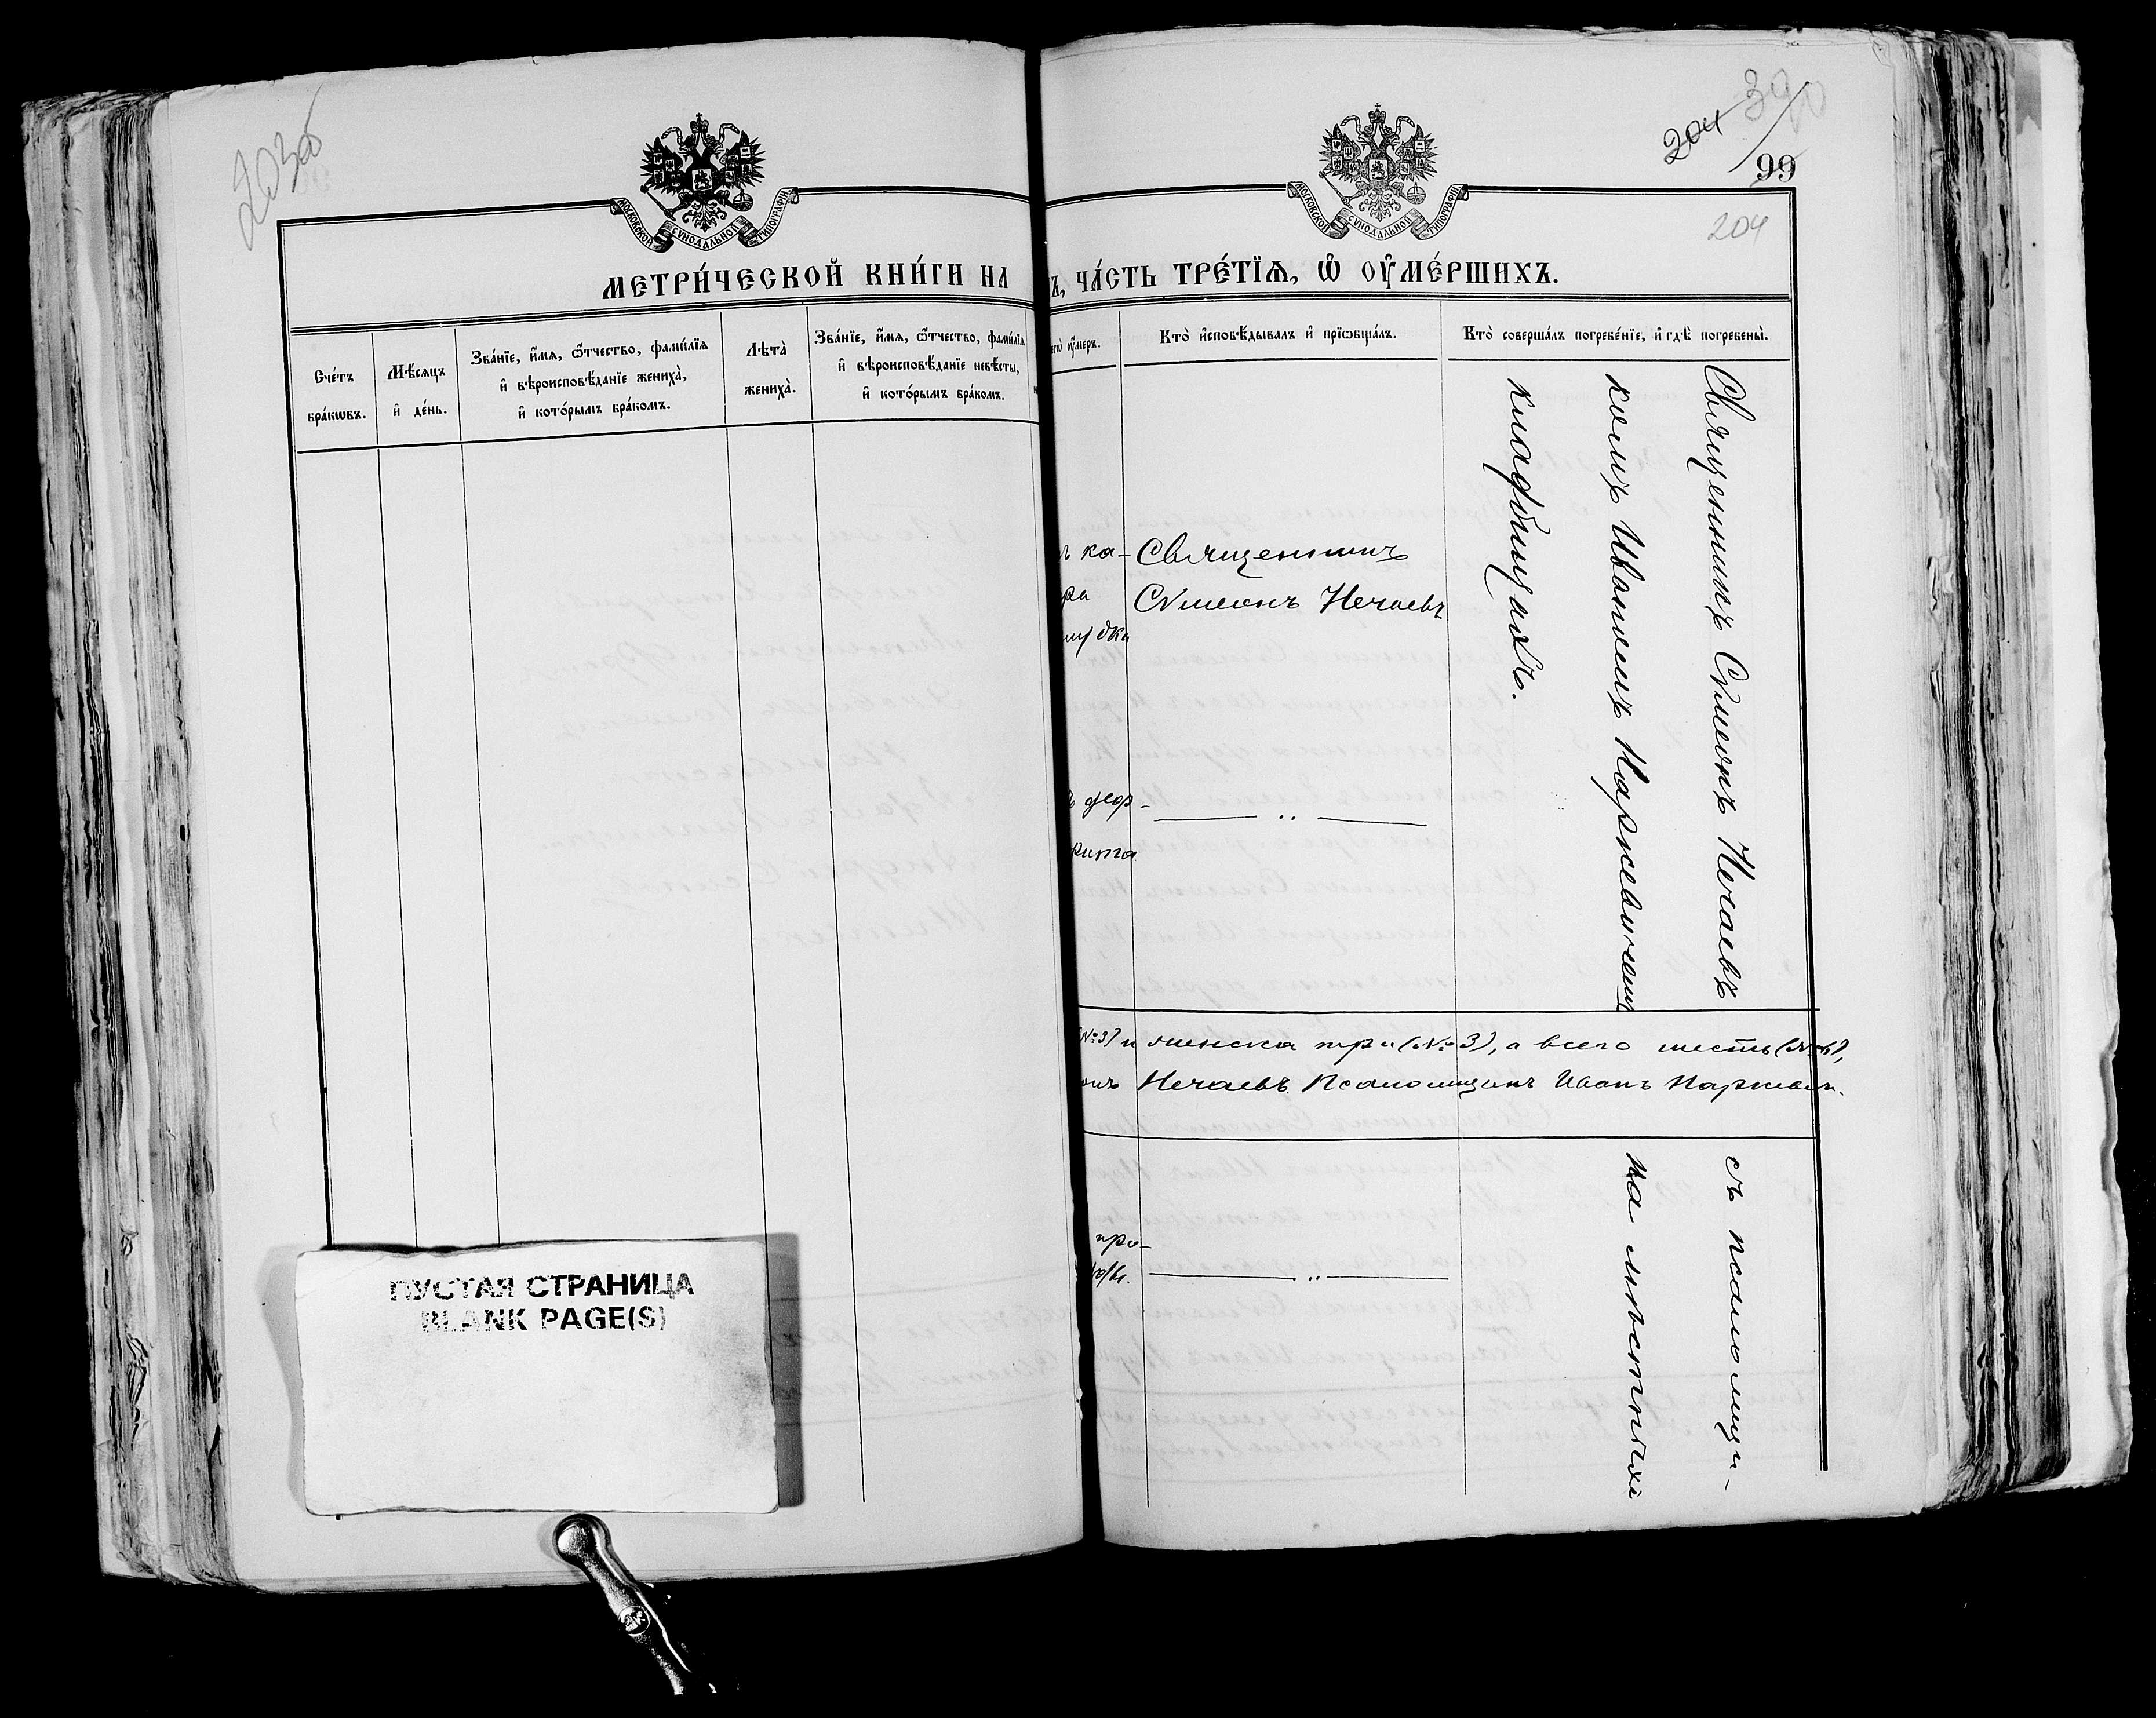 203об
МОСКОВСКОЙ СѴНОДАЛЬНОЙ ТИПОГРАФІИ
МЕТРИ́ЧЕСКОЙ КНИ́ГИ НА
Сче́тъ бра́кѡвъ.
Мѣ́сѧцъ и҆ де́нь.
Зва́нїе, и҆́мѧ, ѻ҆́тчество, фами́лїѧ
и҆ вѣроисповѣ́данїе жениха̀,
и҆ кото́рымъ бра́комъ.
Лѣта̀ жениха̀.
Зва́нїе, и҆́мѧ, ѻ҆́тчество, фами́лїѧ
и҆ вѣроисповѣ́данїе невѣ́сты,
и҆ кото́рымъ бра́комъ.
ПУСТАЯ СТРАНИЦА
BLANK PAGE(S)
204
99
204
МОСКОВСКОЙ СѴНОДАЛЬНОЙ ТИПОГРАФІИ
Ъ, ЧА́СТЬ ТРЕ́ТЇѦ, Ѽ ОУ҆МЕ́РШИХЪ.
оу҆́меръ.
Кто̀ и҆сповѣ́дывалъ и҆ прїѡбща́лъ.
Кто̀ соверша́лъ погребе́нїе, и҆ гдѣ̀ погребены̀.
ъ ка-
Священникъ
Сѵмеонъ Нечаевъ
Священникъ Сѵмеонъ Нечаевъ
комъ Иваномъ Наркевичемъ
кладбищахъ.
— " —
№3) и женска три (№ 3), а всего шесть (№ 6),
онъ Нечаевъ. Псаломщикъ Иванъ Наркевич.
— " —
съ псаломщи-
на мѣстныхъ